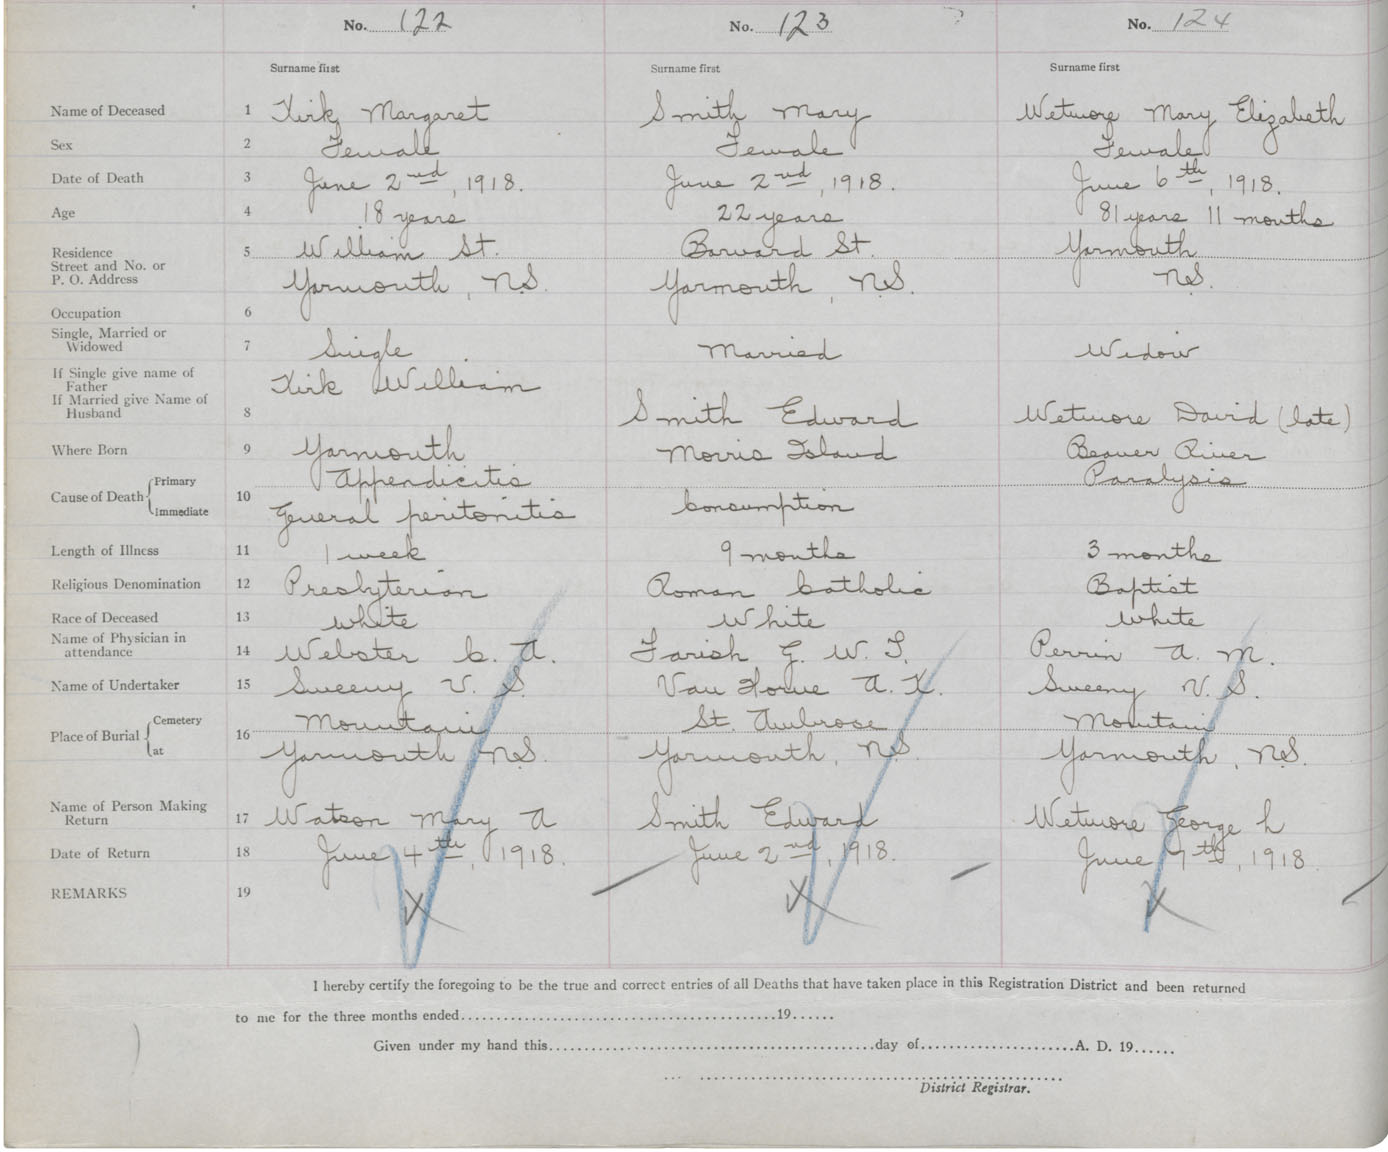 No. 122 No. 123 No. 124
Surname first Surname first Surname first
Name of Deceased 1 Kirk, Margaret Smith Mary Wetmore Mary Elizabeth
Sex 2 Female Female Female
Date of Death 3 June 2nd, 1918. June 2nd, 1918. June 6th, 1918.
Age 4 18 years 22 years 81 years 11 months
Residence 5 William St. Barnard St. Yarmouth
Street and No. or
P. O. Address Yarmouth, N.S. Yarmouth, N.S. N.S.
Occupation 6
Single, Married or
Widowed 7 Single Married Widow
If Single give name of
Father Kirk William
If Married give Name of
Husband 8 Smith Edward Wetmore David (late)
Where Born 9 Yarmouth Morris Island Beaver River
Primary Appendicitis Paralysis
Cause of Death 10
Immediate General peritonitis Consumption
Length of Illness 11 1 week 9 months 3 months
Religious Denomination 12 Presbyterian Roman Catholic Baptist
Race of Deceased 13 white White white
Name of Physician in
attendance 14 Webster C. A. Farish G. W. T. Perrin A. M.
Name of Undertaker 15 Sweeny V. S. Van Horne A. K. Sweeny V. S.
Cemetery Mountain St. Ambrose Mountain
Place of Burial 16
at Yarmouth N.S. Yarmouth, N.S. Yarmouth, N.S.
Name of Person Making
Return 17 Watson Mary A Smith Edward Wetmore George L
Date of Return 18 June 4th, 1918. June 2nd, 1918. June 7th, 1918
REMARKS 19
I hereby certify the foregoing to be the true and correct entries of all Deaths that have taken place in this Registration District and been returned
to me for the three months ended..........19......
Given under my hand this..........day of..........A. D. 19......
District Registrar.